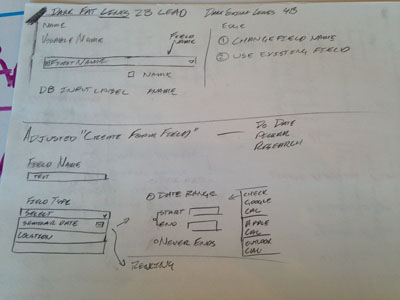 DARK FAT LINES 2B LEAD
NAME
VIEWABLE NAME
FIELD NAME
FIRST NAME
NAME
DB INPUT LABEL
FNAME
DARK LINES 4B
① CHANGE FIELD NAME
② USE EXISTING FIELD
ADJUSTED "CREATE FIELD" — DO DATE
PICKER
RESEARCH
FIELD NAME
TEXT
FIELD TYPE
SELECT
SEMINAR DATE
LOCATION
DATE RANGE
START
END
NEVER ENDS
CHECK
GOOGLE
CAL
APPLE
CAL
OUTLOOK
CAL